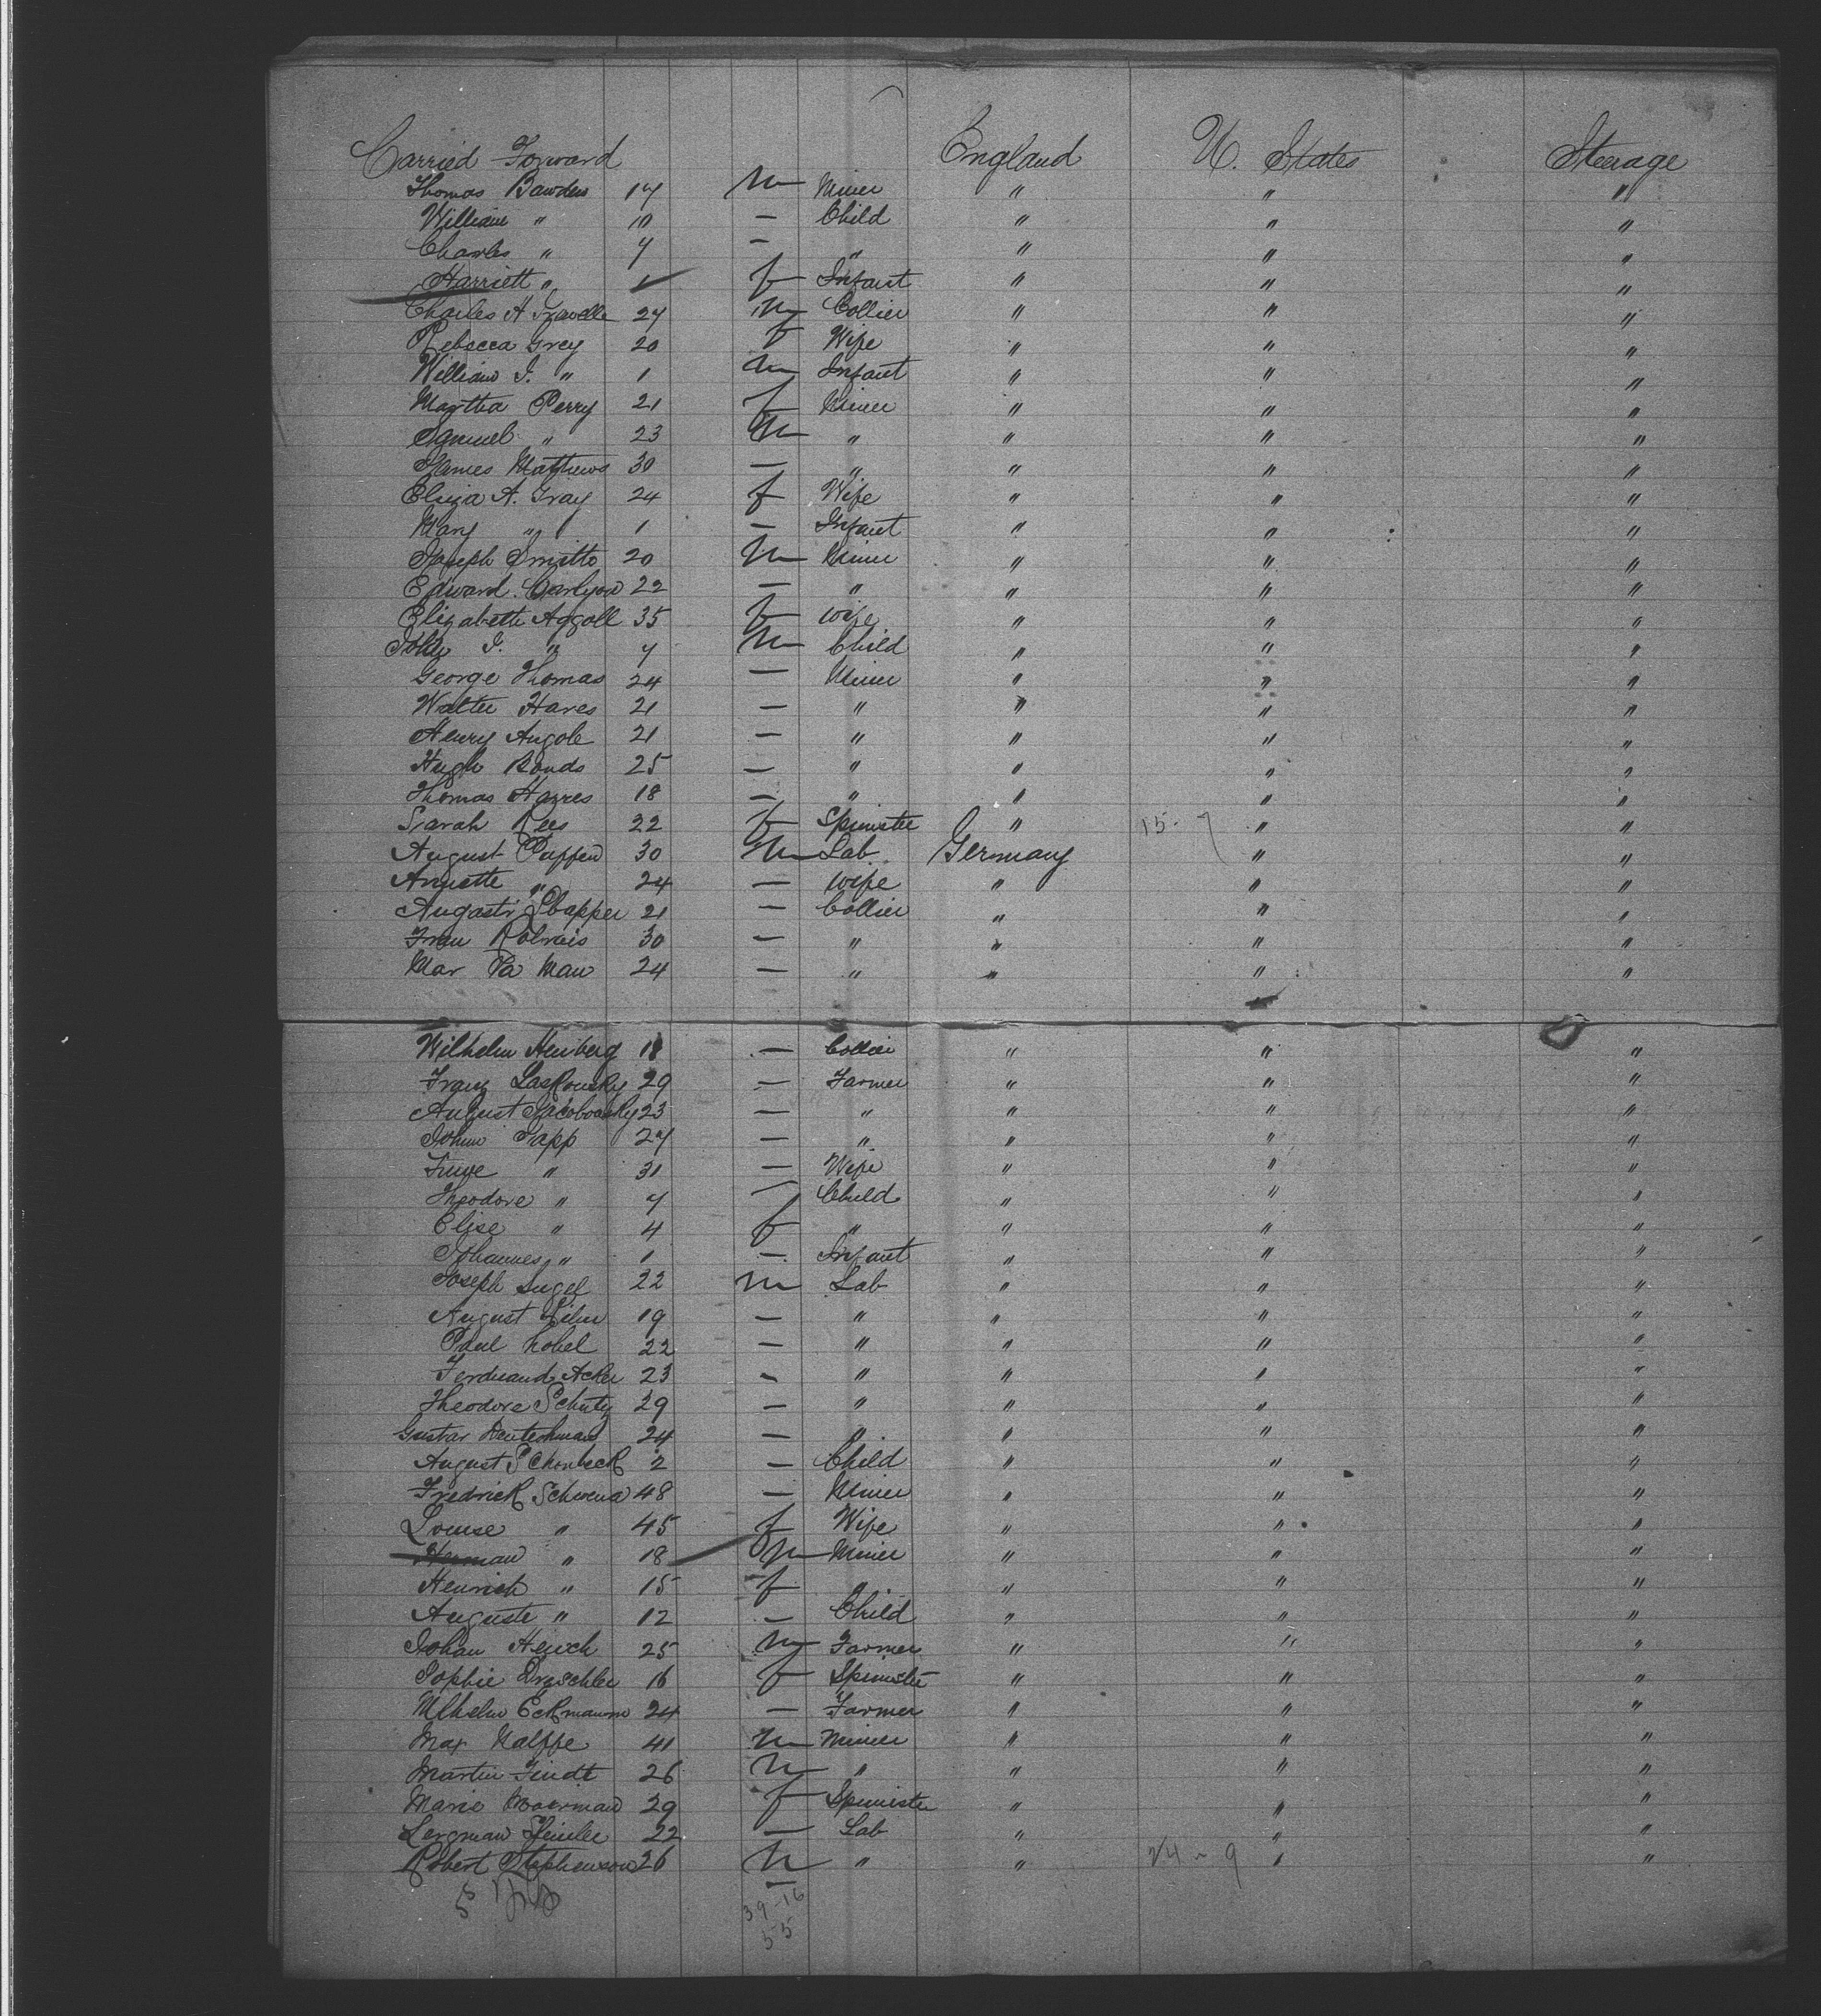 Carried Forward England U. States Steerage
Thomas Bawden 17 M Miner " " "
William " 10 — Child " " "
Charles " 7 — " " " "
Harriett " 1 f Infant " " "
Charles A 24 M Collier " " "
Rebecca Grey 20 f Wife " " "
William J. " 1 M Infant " " "
Martha Perry 21 f Miner " " "
Samuel " 23 M " " " "
James Matthews 30 — " " " "
Eliza A. Gray 24 f Wife " " "
Mary " 1 — Infant " " "
Joseph Smitto 20 M Miner " " "
Edward Carlyon 22 — " " " "
Elizabeth Aggoll 35 f wife " " "
John J. " 7 M Child " " "
George Thomas 24 — Miner " " "
Walter Hares 21 — " " " "
Henry Angole 21 — " " " "
Hugh Bonds 25 — " " " "
Thomas Harres 18 — " " " "
Sarah Rees 22 f Spinster " 15-7 " "
August Puffen 30 M Lab Germany " "
Annette " 24 — wife " " "
August 21 — Collier " " "
30 — " " " "
Mar Va Man 24 — " " " "
Wilhelm Henberg 18 — Collier " " "
Franz Laskowsky 29 — Farmer " " "
August Jacobowsky 23 — " " " "
Johan Tapp 27 — " " " "
" 31 — Wife " " "
Theodore " 7 — Child " " "
Elise " 4 f " " " "
Johannes " 1 — Infant " " "
Joseph 22 M Lab " " "
August 19 — " " " "
Paul Lobel 22 — " " " "
Ferdinand Acker 23 — " " " "
Theodore Schutz 29 — " " " "
Gustav Deutschman 24 — " " " "
August Schonbeck 2 — Child " " "
Fredrick Schwena 48 — Miner " " "
Louise " 45 f Wife " " "
Herman " 18 M Miner " " "
Henrich " 15 f " " " "
Auguste " 12 — Child " " "
Johan Heuch 25 M Farmer " " "
Sophie Draschler 16 f Spinster " " "
Wlhelm Eckmann 24 — Farmer " " "
Max Nalppe 41 M Miner " " "
Martin Findt 26 M " " " "
Marie Moorman 29 f Spinster " " "
Lergman 22 — Lab " " "
Robert Stephenson 26 M " " 24-9 " "
39-16
55